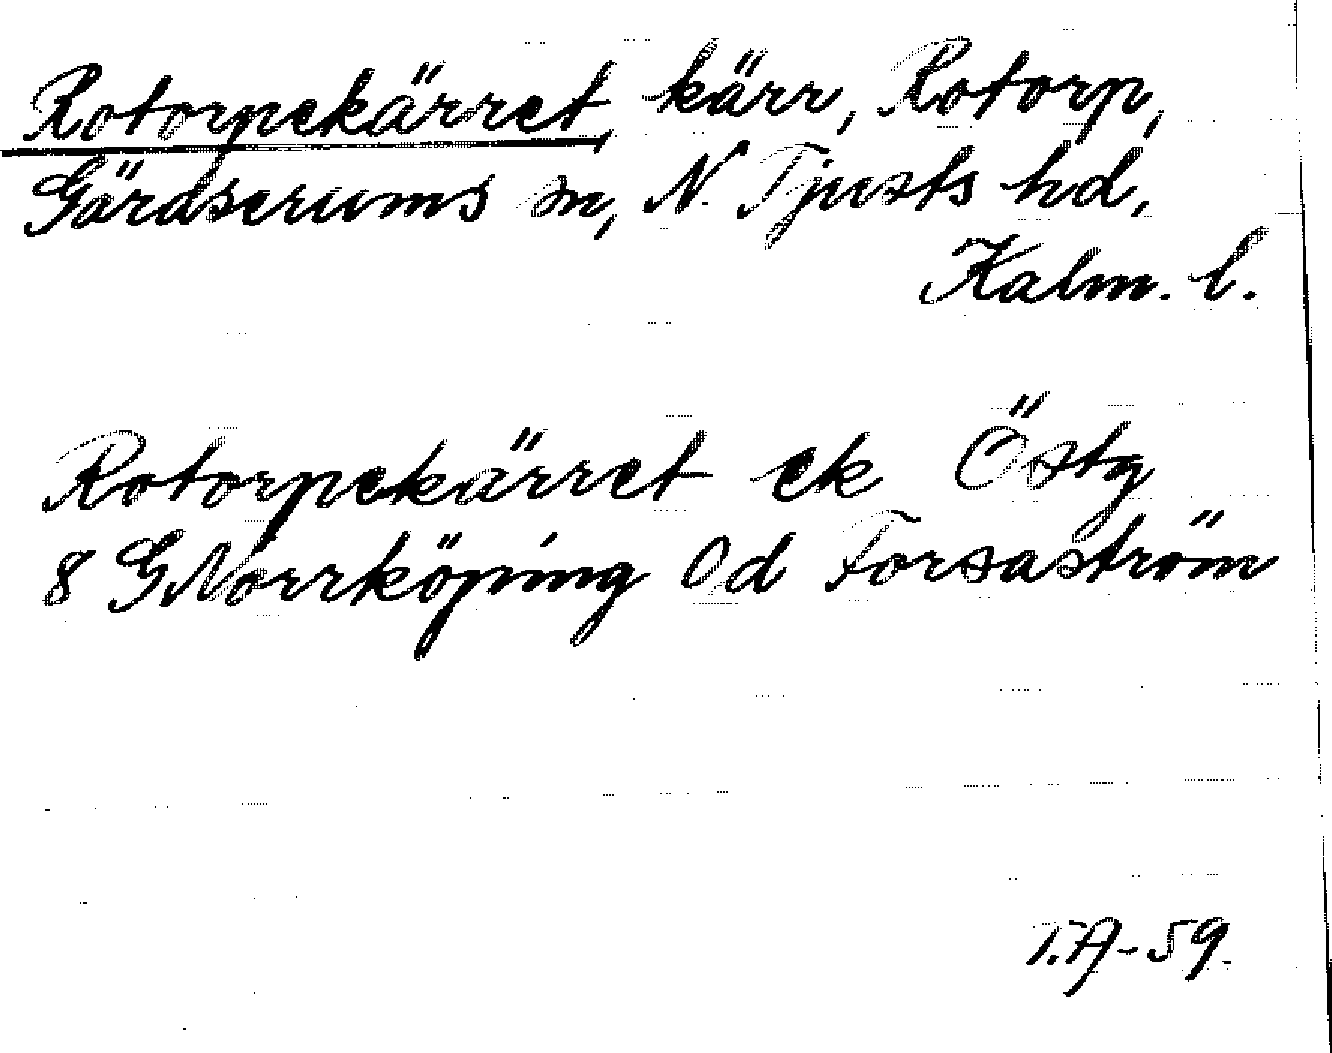 Rotorpekärret, kärr, Rotorp,
Gärdserums sn, N. Tjusts hd,
Kalm. l.
Rotorpekärret ek Östg
8 G Norrköping 0d Forsaström
T.A-59.